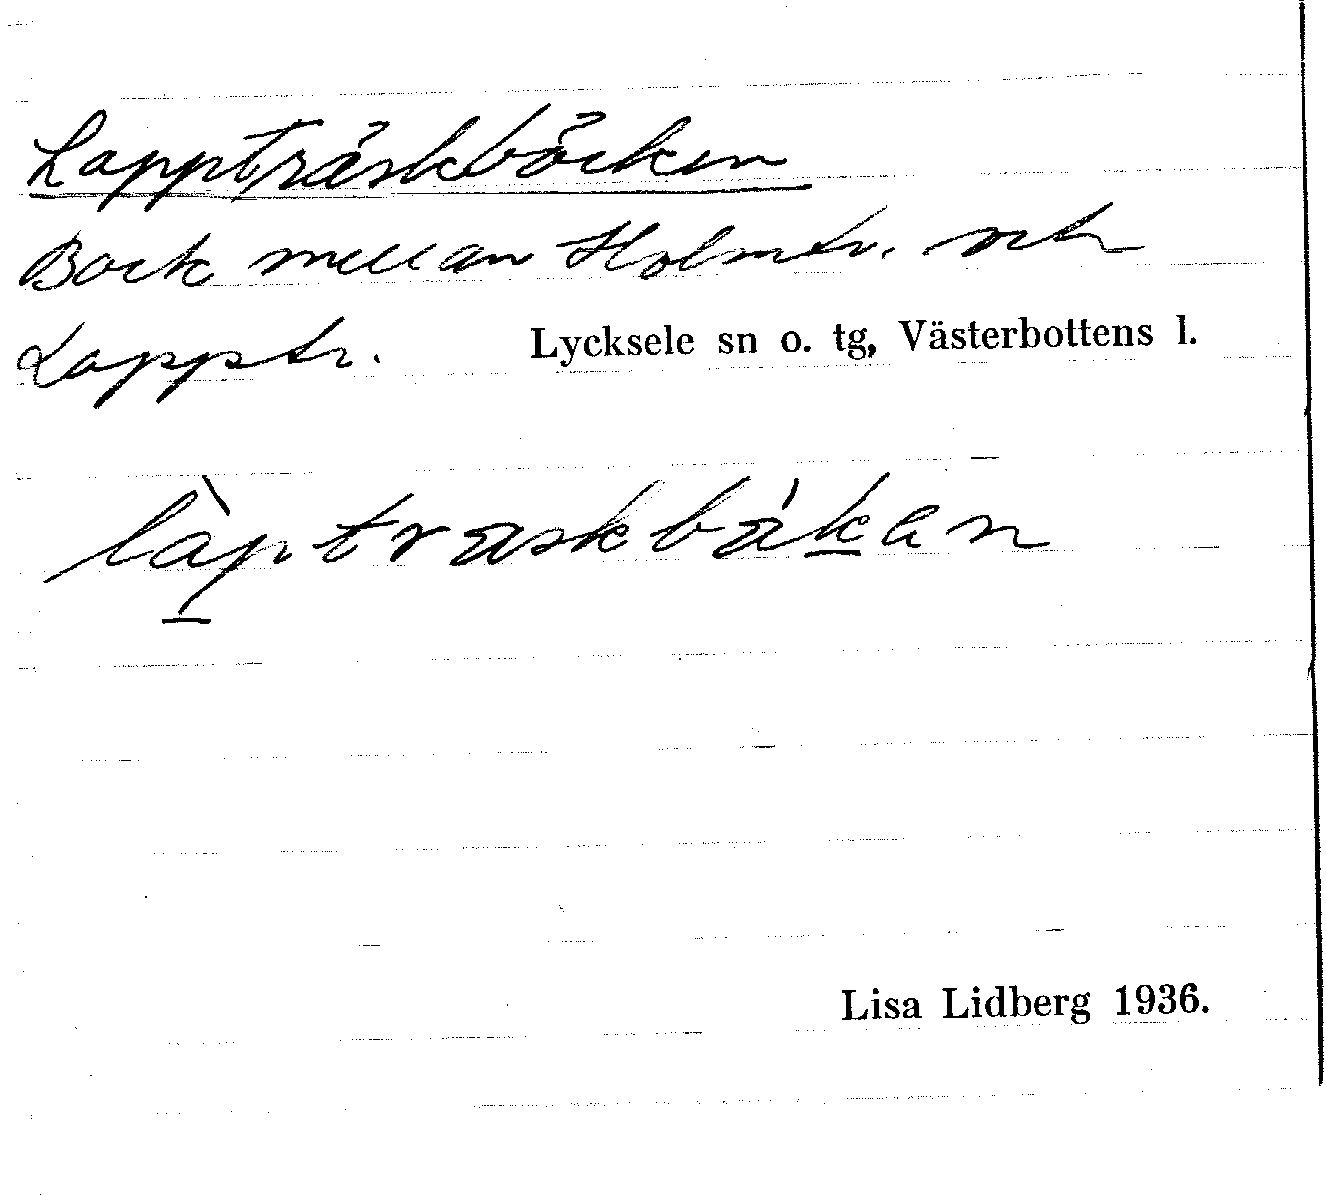 Lappträskbäcken
Bäck mellan Holmtr. och
Lapptr. Lycksele sn o. tg, Västerbottens l.
làptraskbákan
Lisa Lidberg 1936.